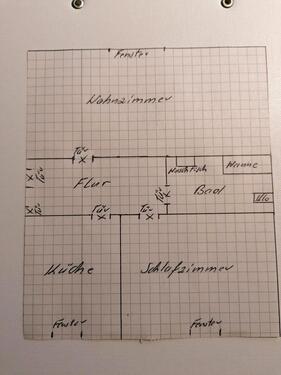 Fenster
Wohnzimmer
Tür
Tür
Waschtisch
Wanne
Flur
Tür
Bad
WC
Tür
Tür
Tür
Küche
Schlafzimmer
Fenster
Fenster